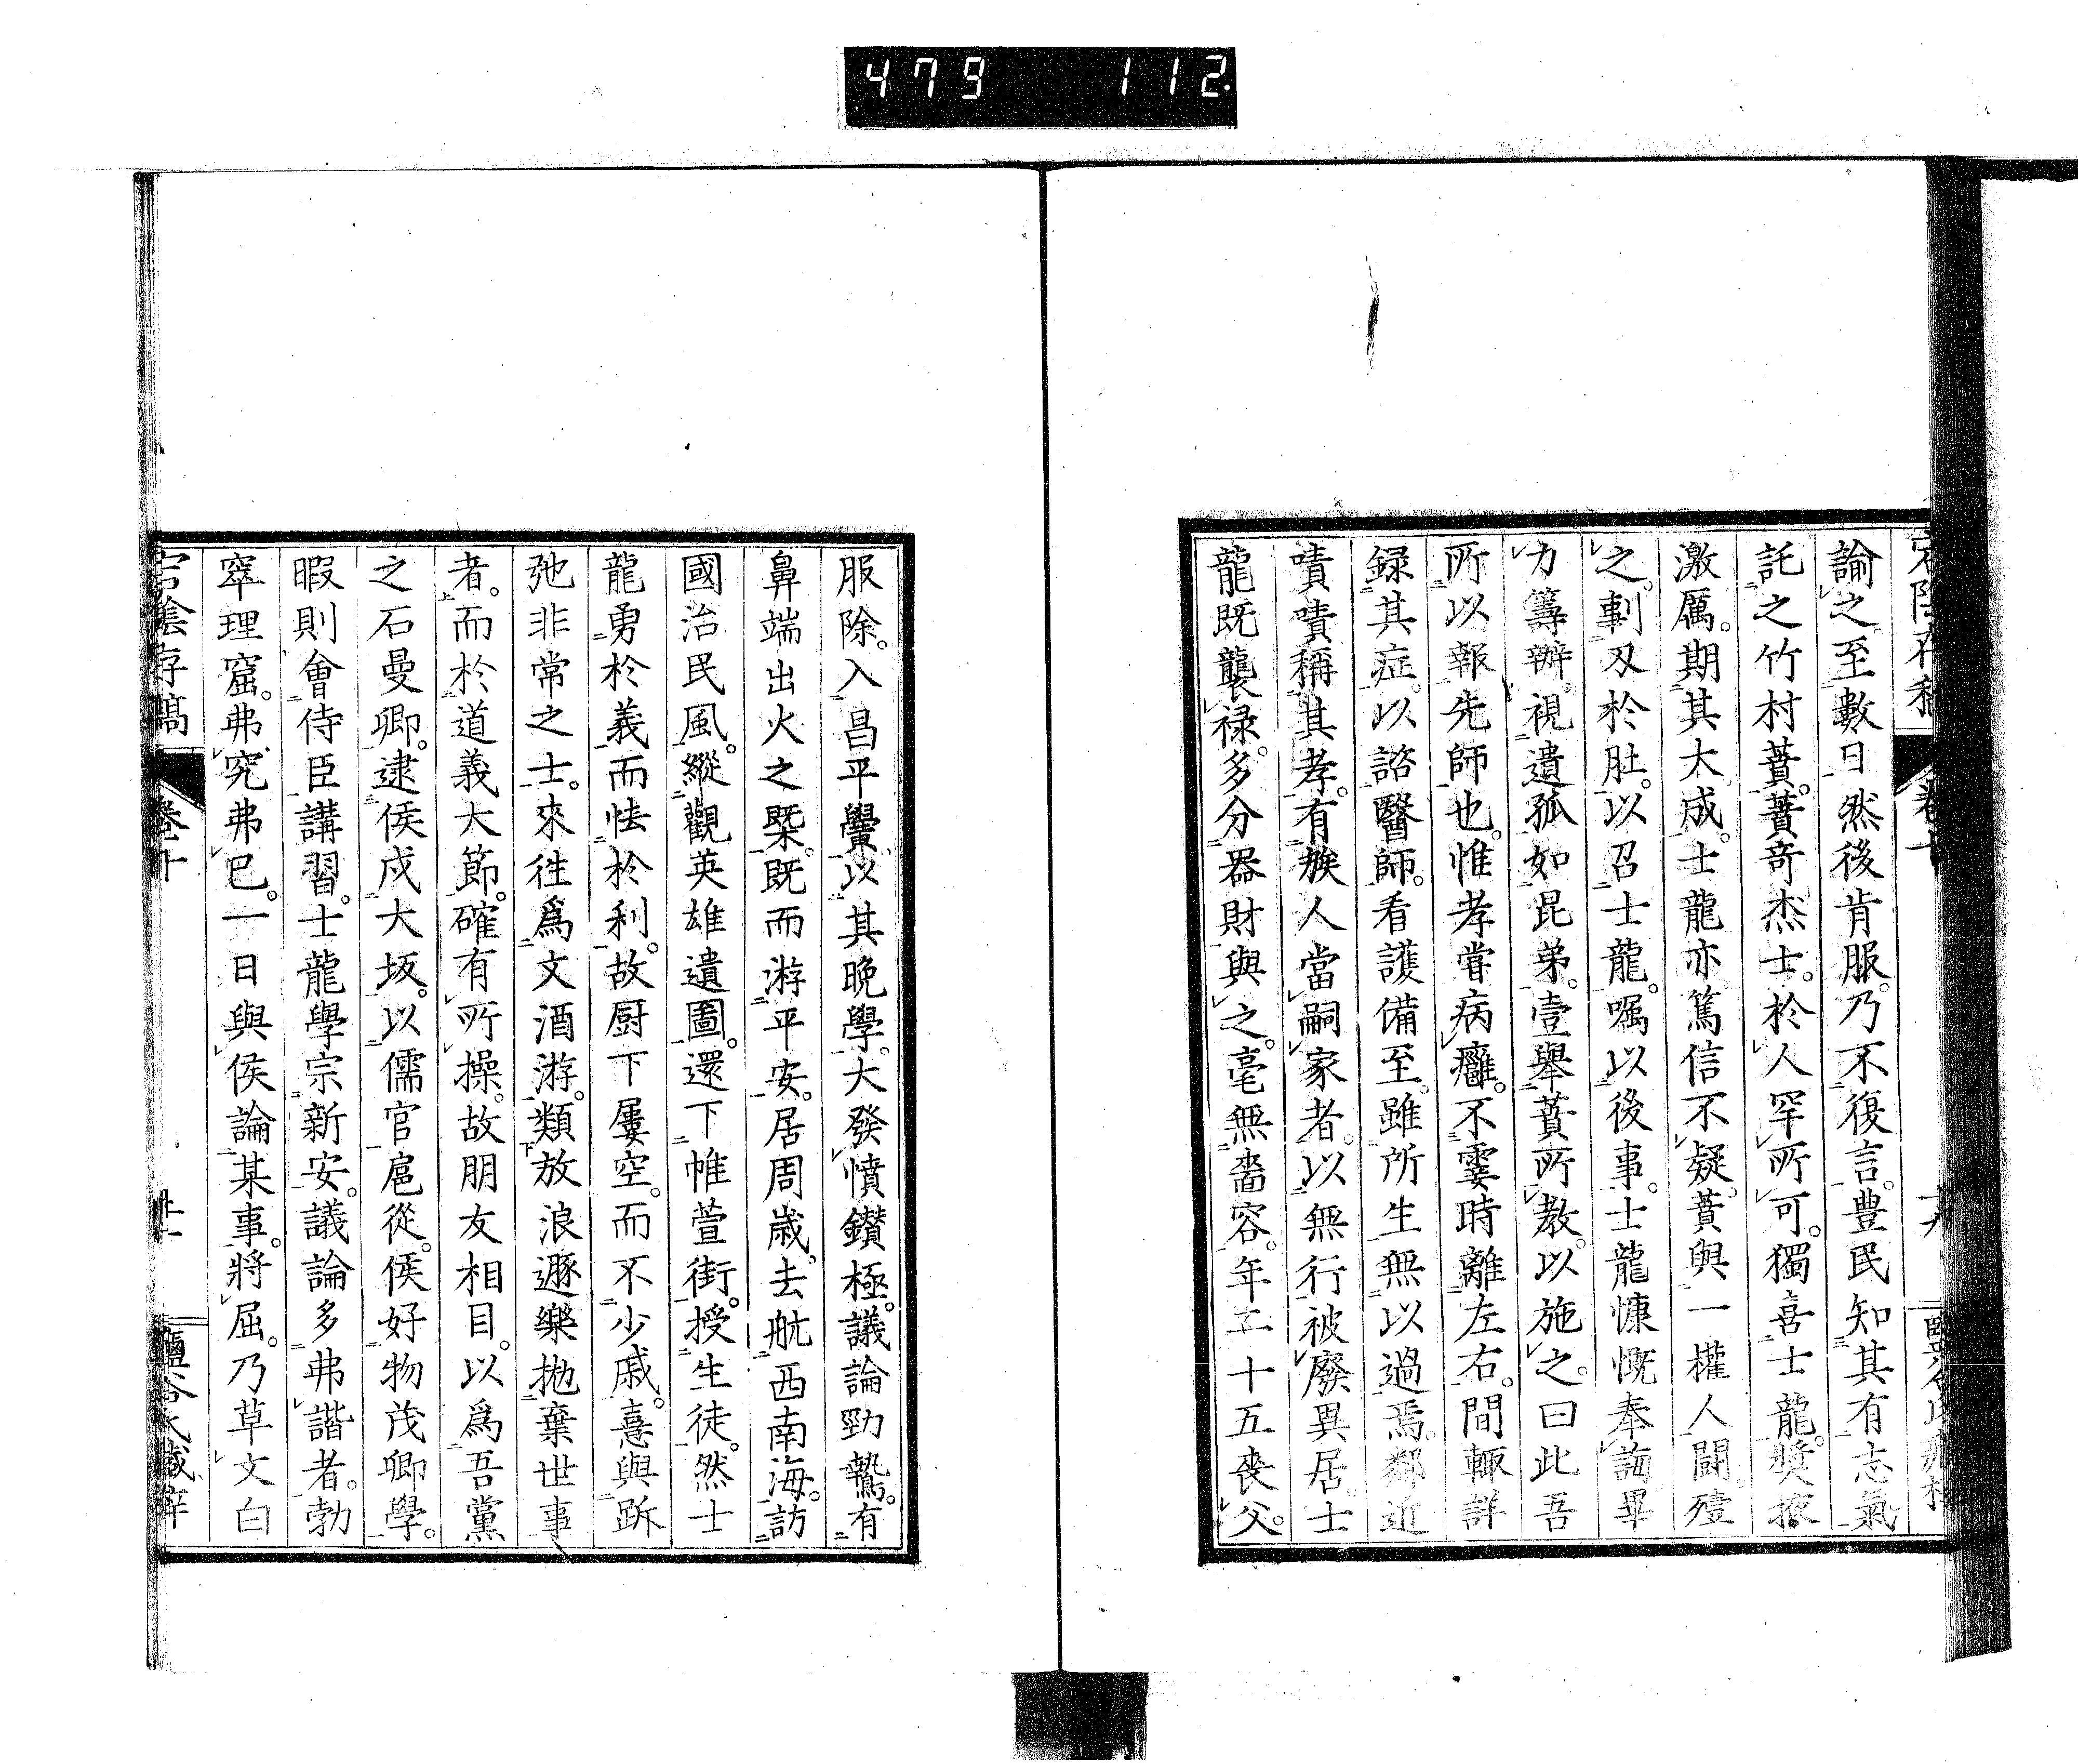 479 112
論之。至數日然後肯服。乃不復言。豊民知其有志氣
託之竹村蕡。蕡奇杰士。於人罕所可。獨喜士龍。奬掖
激厲。期其大成。士龍亦篤信不疑。蕡與一權人鬪。殪
之。剚刃於肚。以召士龍。嘱以後事。士龍慷慨奉誨畢
力籌辦。視遺孤如昆弟。壹舉蕡所教。以施之。曰此吾
所以報先師也。惟孝甞病癰。不霎時離左右。間輙詳
録其症。以諮醫師。看護備至。雖所生無以過焉。鄰近
嘖嘖稱其孝。有族人當嗣家者。以無行被廢異居。士
龍既襲禄。多分器財與之。毫無嗇容。年二十五喪父。
服除。入昌平黌。以其晚學。大發憤鑚極。議論勁鷙。有
鼻端出火之槩。既而游平安。居周歳。去航西南海。訪
國治民風。縱觀英雄遺圖。還下帷萱街。授生徒。然士
龍勇於義而怯於利。故厨下屢空。而不少戚。憙與跅
弛非常之士。來徃爲文酒游。類放浪遯樂拋棄世事
者。而於道義大節。確有所操。故朋友相目。以爲吾黨
之石曼卿。逮侯戍大坂。以儒官扈從。侯好物茂卿學。
暇則會侍臣講習。士龍學宗新安。議論多弗諧者。勃
窣理窟。弗究弗已。一日與侯論某事。將屈。乃草文白
宕陰存稿 卷十